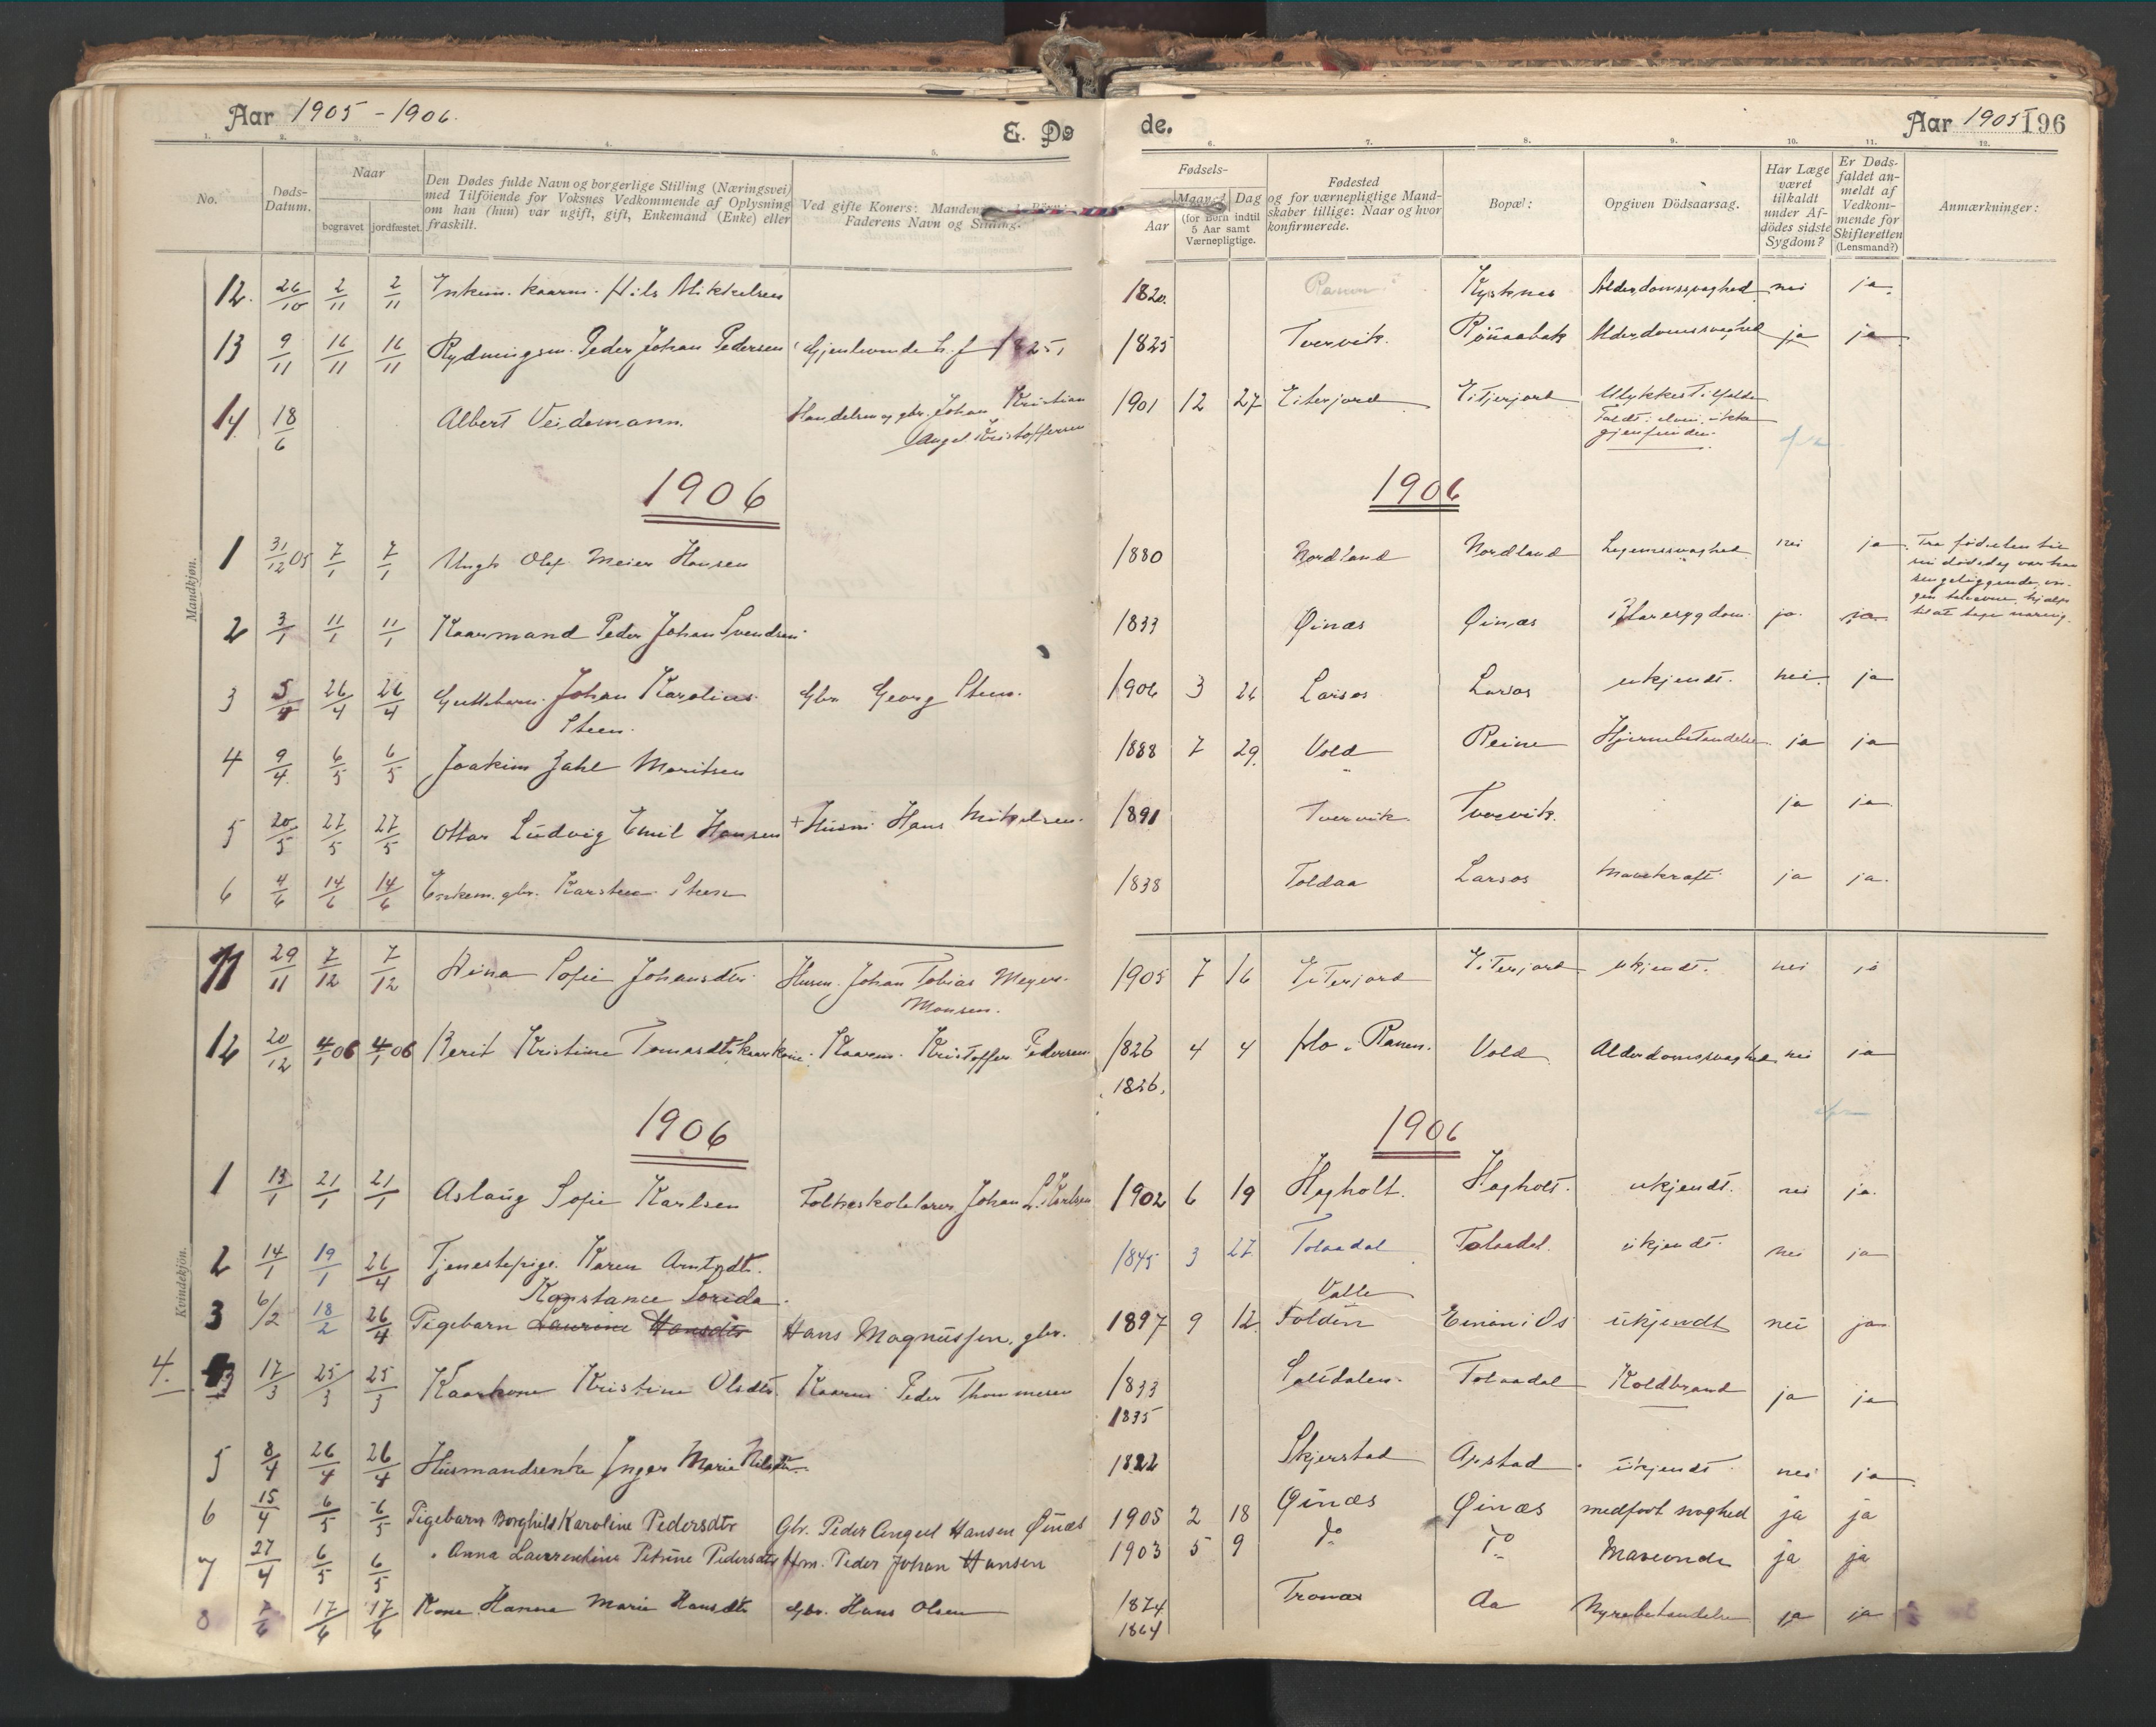 Aar 1905 - 1906. E. Dø de. Aar 1905 196
1. 2. 3. 4. 5. 6. 7. 8. 9. 10. 11. 12.
No. Døds-Datum. Naar begravet jordfæstet. Den Dødes fulde Navn og borgerlige Stilling (Næringsvei) med Tilföiende for Voksnes Vedkommende af Oplysning om han (hun) var ugift, gift, Enkemand (Enke) eller fraskilt. Ved gifte Koners: Mandens Faderens Navn og Stilling. Fødsels- Aar Maaned Dag (for Børn indtil 5 Aar samt Værnepligtige. Fødested og for værnepligtige Mandskaber tillige: Naar og hvor konfirmerede. Bopæl: Opgiven Dödsaarsag. Har Læge været tilkaldt under Afdödes sidste Sygdom? Er Dødsfaldet anmeldt af Vedkommende for Skifteretten (Lensmand?) Anmærkninger:
Mandkjøn.
12. 26/10 2/11 2/11 Nils Mikkelsen 1820. Ranen Alderdomssvaghed nei ja.
13 9/11 16/11 16/11 Rydningsm. Peder Johan Pedersen 1825 Tvervik. Alderdomssvaghed ja ja
14. 18/6 Albert Veidemann. Johan Kristian Angel Kristoffersen 1901 12 27 Eiterjord Eiterjord Ulykkestilfælde
gjenfunden.
1906 1906
1 31/12 05 7/1 7/1 Ungk Olaf Meier Hansen 1880 Nordland Nordland Legemssvaghed nei ja Fra fødselen til sin dødsdag var han sengeliggende,
2 3/1 11/1 11/1 Kaarmand Peder Johan Svendsen 1833 Øinæs Øinæs Blæresygdom. ja. ja.
3 5/4 26/4 26/4 Guttebarn. Johan Karolius Steen. Gbr. Georg Steen. 1906 3 26 Larsos Larsos ukjendt. nei. ja
4 9/4 6/5 6/5 Joakim Zahl Moritsen 1888 7 29. Vold Reine Hjernebetændelse. ja ja
5 20/5 27/5 27/5 Ottar Ludvig Emil Hansen + Husm. Hans Mikelsen. 1891 Tvervik. Tvervik. ja ja
6 4/6 14/6 14/6 Enkem. gbr. Karsten Steen 1838 Toldaa Larsos Mavekræft ja ja.
Kvindekjön.
11 29/11 7/12 7/12 Sofie Johansdtr. Husm. Johan Tobias Meyer Monsen. 1905 7 16 Eiterjord Eiterjord ukjendt. nei ja
12 20/12 4/1 06 4/1 06 Berit Kristine Tomasdtr. Kaarkone. Kaarm. Kristoffer Pedersen 1826 4 4 Mo i Ranen. Vold Alderdomssvaghed nei ja
1826.
1906 1906
1 13/1 21/1 21/1 Aslaug Sofie Karlsen Folkeskolelærer Johan L. Karlsen 1902 6 19 Hagholt. Hagholt. ukjendt. nei ja.
2 14/1 19/1 26/4 Tjenestepige. Karen Arntsdtr. 1845 3 27 Tolaadal Tolaadal. ukjendt. nei ja
Konstance Lovida. Valle
3 6/2 18/2 26/4 Pigebarn Laurine Hansdtr Hans Magnussen, gbr. 1897 9 12. Folden ukjendt nei ja
4. 3 17/3 25/3 25/3 Kaarkone Kristine Olsdtr. Kaarm. Peder Thommesen 1833 Saltdalen. Tolaadal Koldbrand ja ja
1835
5 8/4 26/4 26/4 Husmandsenke Inger Marie Nilsdtr. 1822 Skjerstad ukjendt nei ja
6 15/4 6/5 6/5 Pigebarn Borghild Karoline Pedersdtr Gbr. Peder Angel Hansen Øinæs 1905 2 18 Øinæs Øinæs medfødt svaghed ja ja
7 27/4 6/5 6/5 " Anna Laurentine Petrine Pedersdtr Hm. Peder Johan Hansen 1903 5 9 Do Do Maveonde ja ja
8 7/6 17/6 17/6 Kone Hanna Marie Hansdtr Gbr. Hans Olsen 1874 Aa Nyrebetændelse ja ja
1864